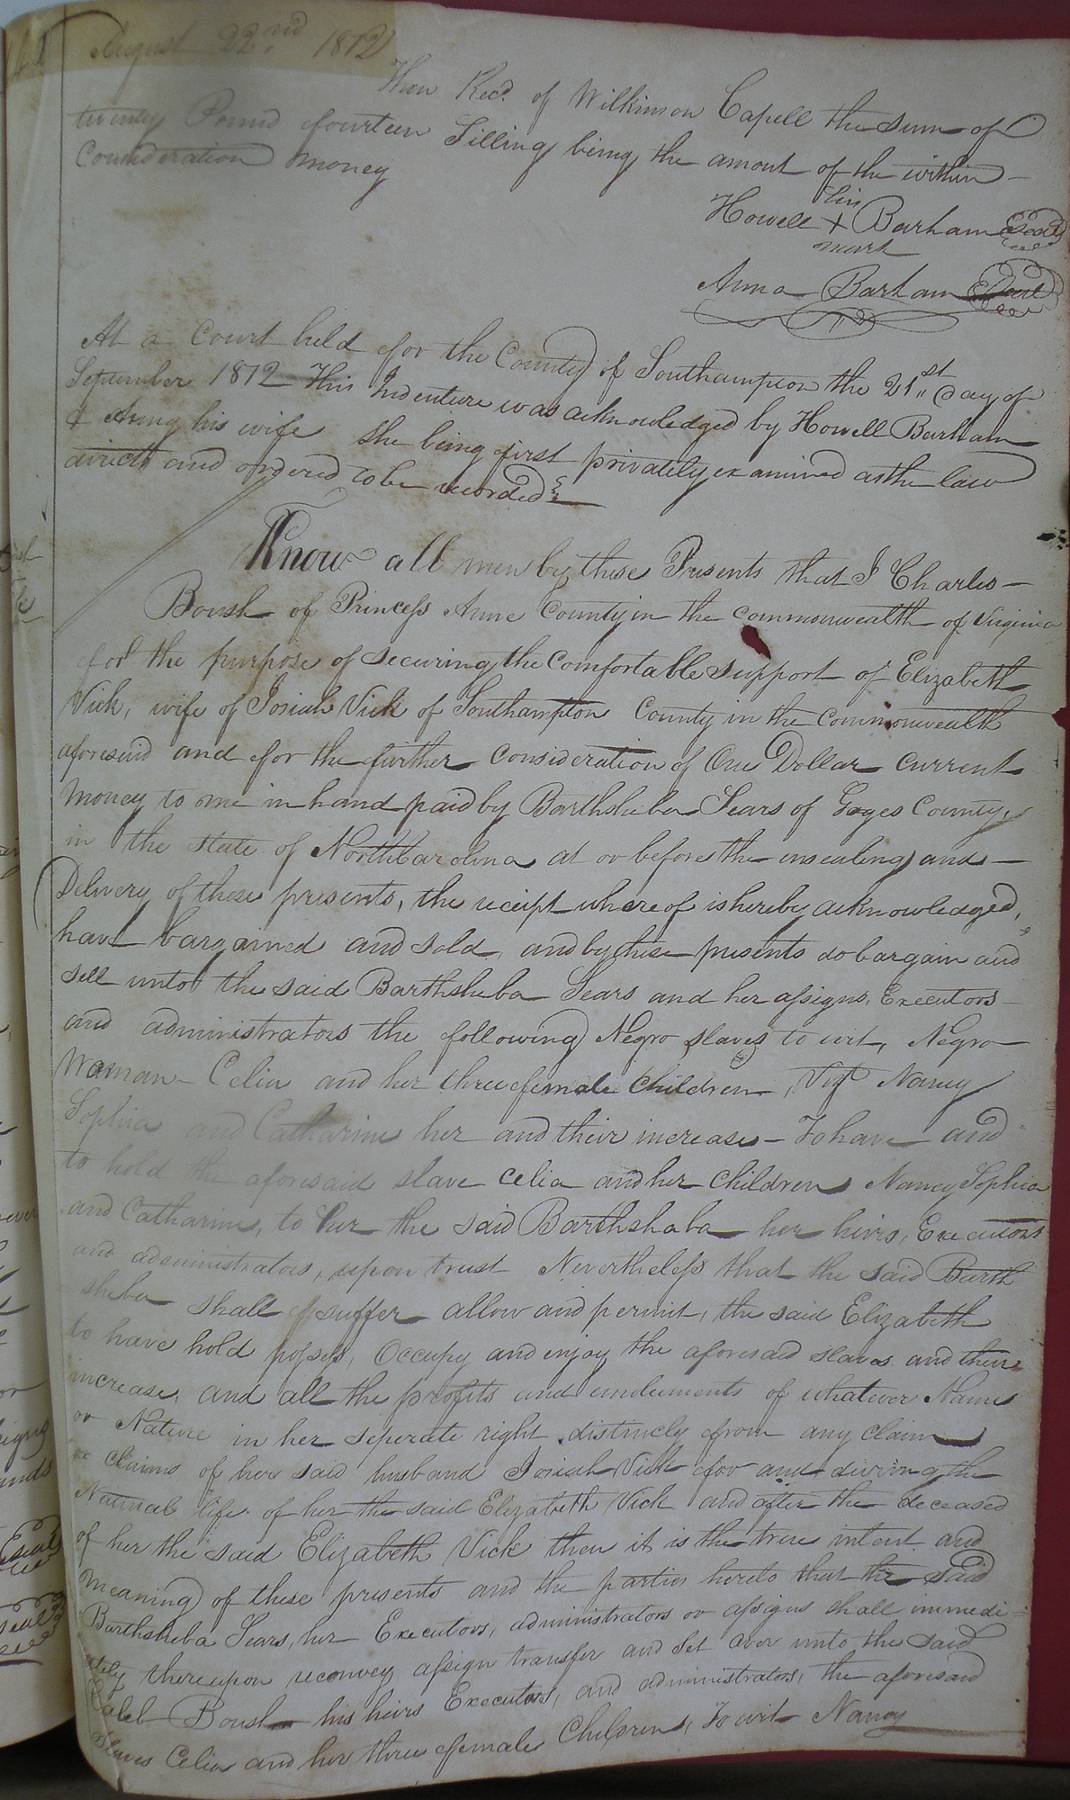 August 22nd 1812
Then Recd. of Wilkinson Capell the sum of
twenty Pound fourteen Silling being the amont of the within
Consideration money
his
Howell + Barham Seal
mark
Anna Barham Seal
At a Court held for the County of Southampton the 21st day of
September 1812 This Indenture was acknowledged by Howell Barham
& his wife she being first privately examined as the law
directs and ordered to be recorded
Know all men by these Presents that I Charles
Boush of Princess Anne County in the commonwealth of Virginia
for the purpose of securing the Comfortable support of Elizabeth
Vick, wife of Josiah Vick of Southampton County in the Commonwealth
aforesaid and for the further consideration of One Dollar current
Money to me in hand paid by Barthsheba Sears of Gages County,
in the state of North Carolina at or before the ensealing and
Delivery of these presents, the receipt whereof is hereby acknowledged,
have bargained and sold, and by these presents do bargain and
sell unto the said Barthsheba Sears and her assigns, Executors
and administrators the following Negro slaves to wit, Negro
Woman Celia and her three female Children, Viz Nancy
Sophia and Catharine her and their increase - To have and
to hold the aforesaid slave Celia and her Children Nancy Sophia
and Catharine, to her the said Barthshaba her heirs, Executors
and administrators, upon trust Nevertheless that the said Barth
sheba shall suffer allow and permit, the said Elizabeth
to have hold possess, Occupy and enjoy the aforesaid slaves and their
increase, and all the profits and emoluments of whatever Name
or Nature in her seperate right distincly from any Claim
or claims of her said husband Josiah Vick for and during the
Natural life of her the said Elizabeth Vick and after the deceased
of her the said Elizabeth Vick then it is the true intent and
meaning of these presents and the parties hereto that the said
Barthsheba Sears, her Executors, administrators or assigns shall immedi-
ately thereupon reconvey assign transfer and Set over unto the said
Caleb Boush his heirs Executors, and administrators, the aforesaid
Slaves Celia and her three female Children, To wit Nancy